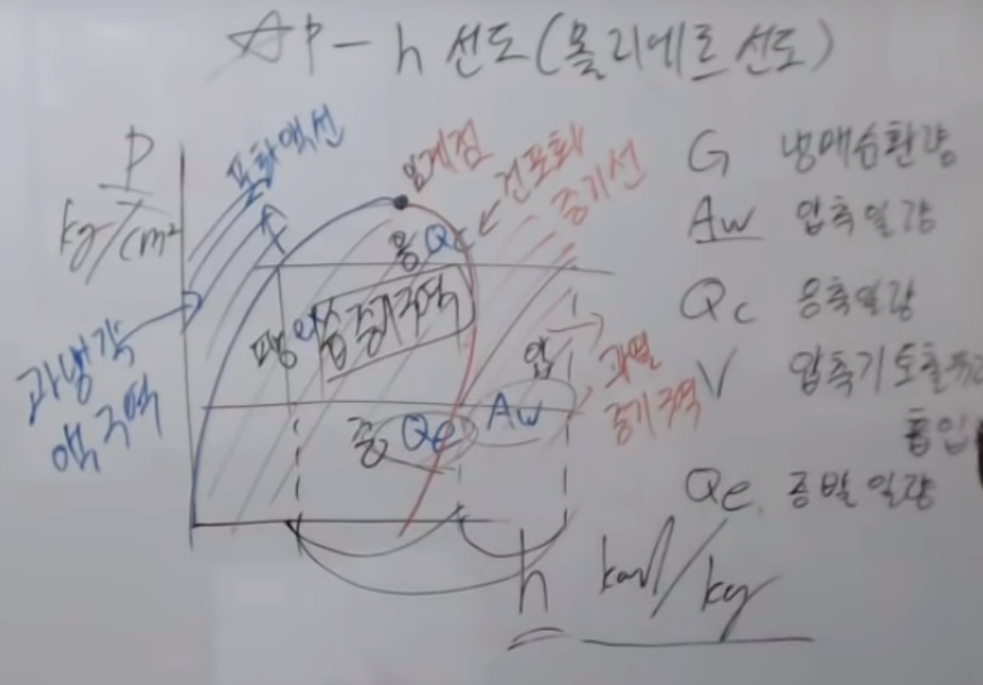 ☆ P-h 선도(몰리에르 선도)
P
kg/cm²
포화액선
임계점
건포화
증기선
G 냉매순환량
Aw 압축일량
Qc 응축열량
V 압축기토출
흡입
Qe 증발열량
응 Qc
팽
습증기구역
압
과열
증기구역
과냉각
액구역
증 Qe
Aw
h kcal/kg